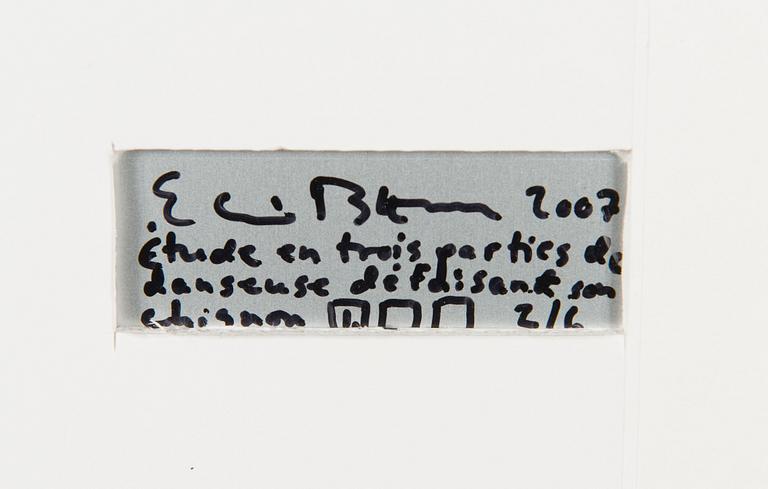 2007
étude en trois parties de
danseuse défaisant son
chignon 2/6